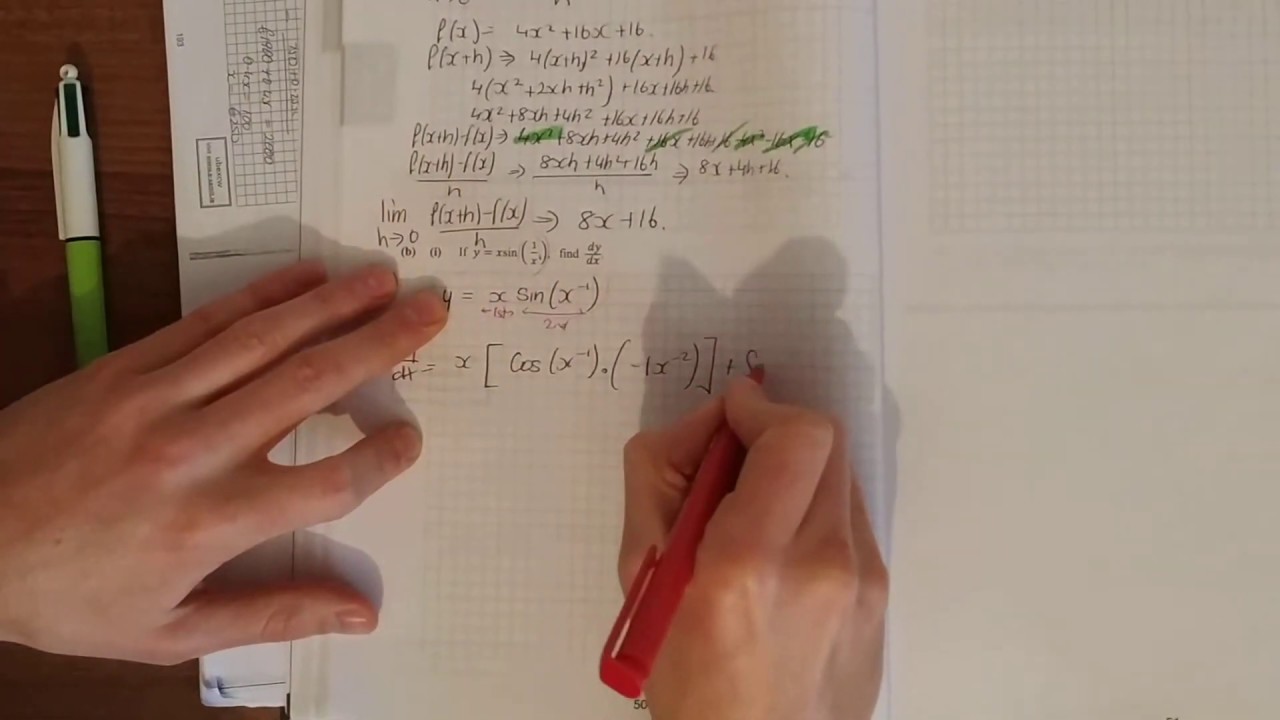 f(x) = 4x² + 16x + 16.
f(x+h) ⇒ 4(x+h)² + 16(x+h) + 16
4(x² + 2xh + h²) + 16x + 16h + 16
4x² + 8xh + 4h² + 16x + 16h + 16
f(x+h) - f(x) ⇒ 4x² + 8xh + 4h² + 16x + 16h + 16 - 4x² - 16x - 16
f(x+h) - f(x) / h ⇒ 8xh + 4h² + 16h / h ⇒ 8x + 4h + 16.
lim h→0 f(x+h) - f(x) / h ⇒ 8x + 16.
(b) (i) If y = x sin(1/x), find dy/dx
y = x Sin(x⁻¹)
1st 2nd
= x [Cos(x⁻¹).(-1x⁻²)] +
50
193